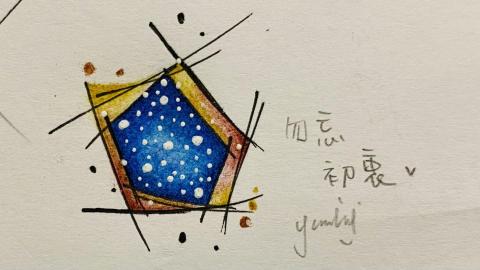 勿忘
初衷